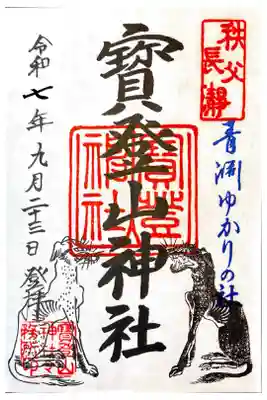 秩父
長瀞
青淵ゆかりの社
寳登山神社
寳登山
神社
令和七年九月二十三日 登拝
寳登山
神社々
務所印